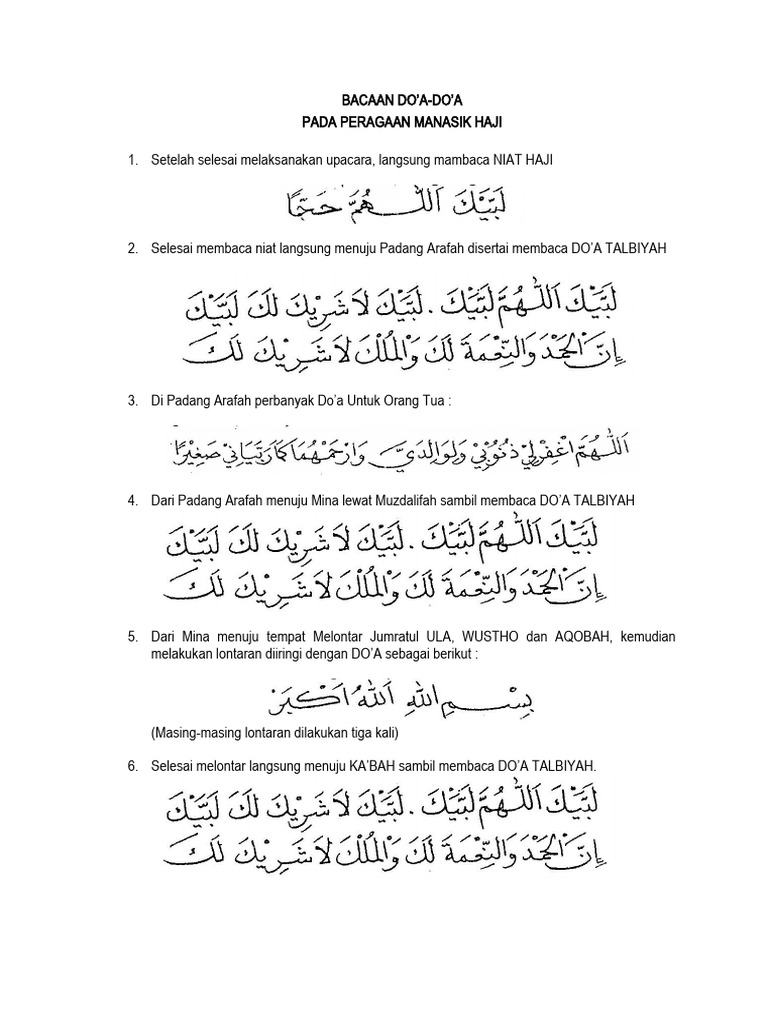 BACAAN DO’A-DO’A
PADA PERAGAAN MANASIK HAJI
1. Setelah selesai melaksanakan upacara, langsung mambaca NIAT HAJI
لَبَّيْكَ اَللّٰهُمَّ حَجًّا
2. Selesai membaca niat langsung menuju Padang Arafah disertai membaca DO’A TALBIYAH
لَبَّيْكَ اَللّٰهُمَّ لَبَّيْكَ . لَبَّيْكَ لاَ شَرِيْكَ لَكَ لَبَّيْكَ
إِنَّ الْحَمْدَ وَالنِّعْمَةَ لَكَ وَالْمُلْكَ لاَ شَرِيْكَ لَكَ
3. Di Padang Arafah perbanyak Do’a Untuk Orang Tua :
اَللّٰهُمَّ اغْفِرْلِيْ ذُنُوْبِيْ وَلِوَالِدَيَّ وَارْحَمْهُمَا كَمَا رَبَّيَانِيْ صَغِيْرًا
4. Dari Padang Arafah menuju Mina lewat Muzdalifah sambil membaca DO’A TALBIYAH
لَبَّيْكَ اَللّٰهُمَّ لَبَّيْكَ . لَبَّيْكَ لاَ شَرِيْكَ لَكَ لَبَّيْكَ
إِنَّ الْحَمْدَ وَالنِّعْمَةَ لَكَ وَالْمُلْكَ لاَ شَرِيْكَ لَكَ
5. Dari Mina menuju tempat Melontar Jumratul ULA, WUSTHO dan AQOBAH, kemudian
melakukan lontaran diiringi dengan DO’A sebagai berikut :
بِسْمِ اللّٰهِ اَللّٰهُ اَكْبَرْ
(Masing-masing lontaran dilakukan tiga kali)
6. Selesai melontar langsung menuju KA’BAH sambil membaca DO’A TALBIYAH.
لَبَّيْكَ اَللّٰهُمَّ لَبَّيْكَ . لَبَّيْكَ لاَ شَرِيْكَ لَكَ لَبَّيْكَ
إِنَّ الْحَمْدَ وَالنِّعْمَةَ لَكَ وَالْمُلْكَ لاَ شَرِيْكَ لَكَ